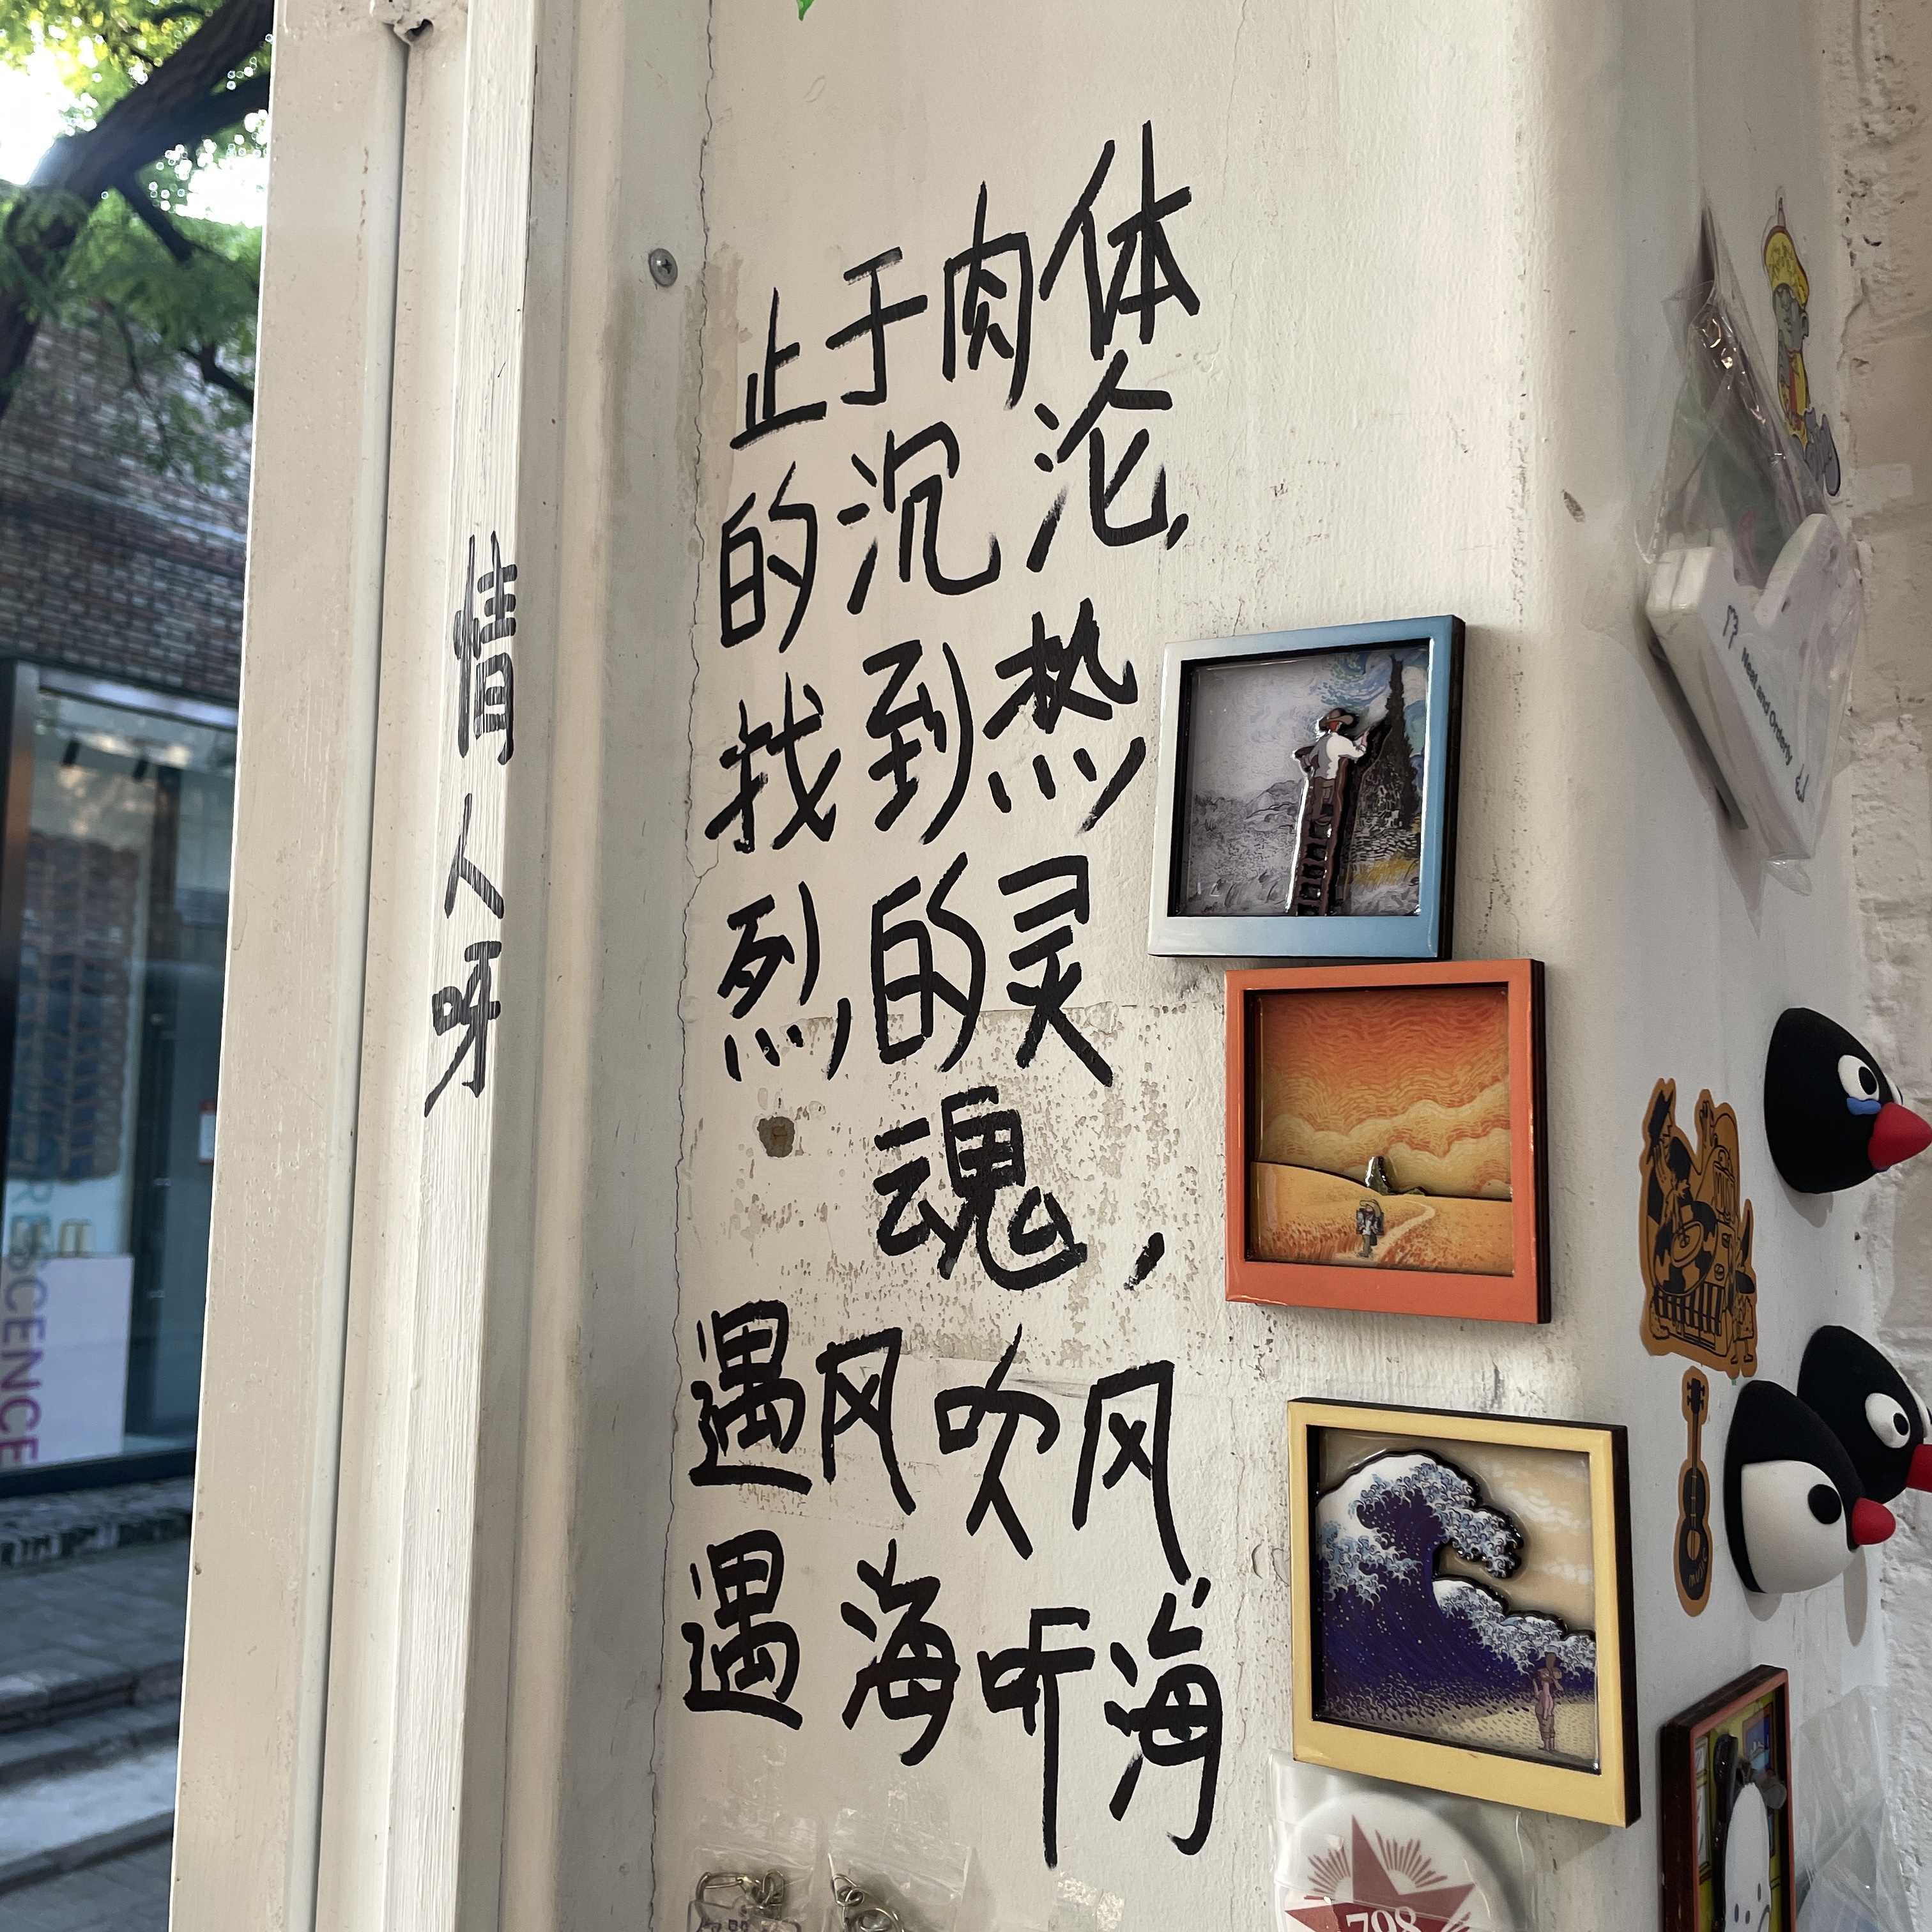 情人呀
止于肉体
的沉沦,
找到热
烈的灵
魂,
遇风吹风
遇海听海
Neat and Orderly
RESCENCE
music
798